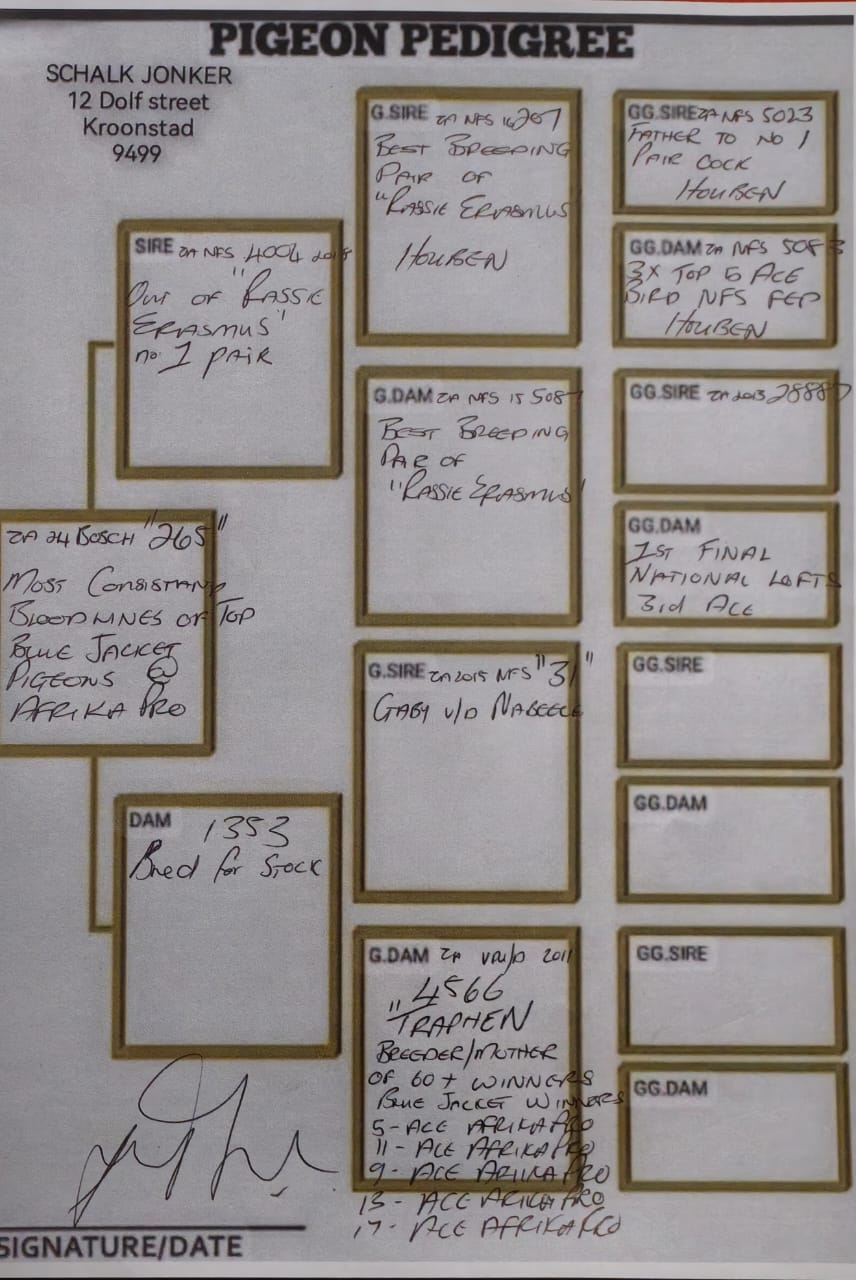 PIGEON PEDIGREE
SCHALK JONKER
12 Dolf street
Kroonstad
9499
ZA 24 BOSCH "265"
MOST CONSISTANT
BLOODLINES OF TOP
BLUE JACKET
PIGEONS @
AFRIKA PRO
SIRE ZA NFS 4004 2018
OUT OF "RASSIE
ERASMUS"
no 1 PAIR
DAM 1353
Bred for STOCK
G.SIRE ZA NFS 16207
BEST BREEDING
PAIR OF
"RASSIE ERASMUS
HOUBEN
G.DAM ZA NFS 15 5087
BEST BREEDING
PAIR OF
"RASSIE ERASMUS"
G.SIRE ZA 2015 NFS "31"
GABY V/D NABEELE
G.DAM ZA 2011
"4566
TRAPHEN
BREEDER/MOTHER
OF 60+ WINNERS
BLUE JACKET WINNERS
5 - ACE AFRIKA PRO
11 - ACE AFRIKA PRO
9 - ACE ARIIKA PRO
13 - ACE ARIKA PRO
17 - ACE AFRIKA PRO
GG.SIRE ZA NFS 5023
FATHER TO NO 1
PAIR COCK
HOUBEN
GG.DAM ZA NFS 5083
3X TOP 5 ACE
BIRD NFS FED
HOUBEN
GG.SIRE ZA 2013 28887
GG.DAM
1ST FINAL
NATIONAL LOFTS
3rd ACE
GG.SIRE
GG.DAM
GG.SIRE
GG.DAM
SIGNATURE/DATE